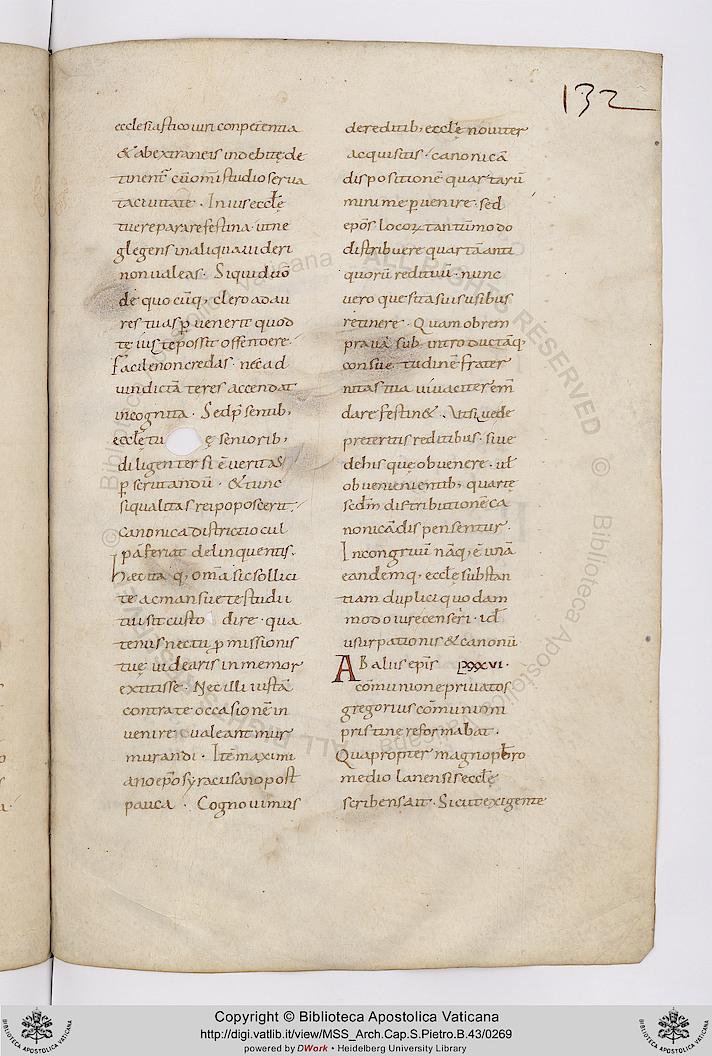 132
ecclesiasticoiuri conpetentia
& abextraneis indebitęde
tinent᷑ cū om̄i studio serua
ta ciuitate. In ius eccłę
tuereparare festina. ut ne
glegens in aliquauideri
nonualeas. Siquid uō
de quocūq; clero adau
res tuas ꝑuenerit quod
te iuste possit offendere.
Facile non credas. nec ad
uindictā te res accendat
incognita. Sed p̄sentib;
eccłę tu ę seniorib;
diligenter si ē ueritas
ꝑscrutandū. & tunc
si qualitas rei poposcerit.
canonica districtio cul
pā feriat delinquentis.
Haec itaq; om̄a sic sollici
te ac mansuete studii
tui sit custodire. qua
tenus nec tu ꝑmissionis
tuę uidearis inmemor
extitisse. Nec illi iustā
contra te occasionē in
uenire ualeant mur
murandi. Itē maximi
ano ep̄o syracusano post
pauca. Cognouimus
de reditib; eccłę nouiter
acquisitis. canonicā
dispositionē quartarū
minime ꝑuenire. sed
ep̄os locoꝝ tantūmodo
distribuere quartā anti
quorū redituū. nunc
uero quesita suis usibus
retinere. Quam obrem
prauā subintroductāq;
consuetudinē frater
nitas tua uiuaciter em̄
dare festin&. Ut siue de
preteritis reditibus. siue
de his quę obuenere. uł
obuenienentib; quarte
scdm̄ distributionē ca
nonicā dispensentur.
Incongruū nāq; ē unā
eandemq; eccłę substan
tiam duplici quodam
modo iure censeri. id
usurpationis & canonū
Ab aliis ep̄is LXXXVI.
cōmunione priuatos
gregorius cōmunioni
pristine reformabat.
Quapropter magno pƀro
mediolanensis eccłę
scribens ait. Sicut exigente
Copyright © Biblioteca Apostolica Vaticana
http://digi.vatlib.it/view/MSS_Arch.Cap.S.Pietro.B.43/0269
powered by DWork • Heidelberg University Library